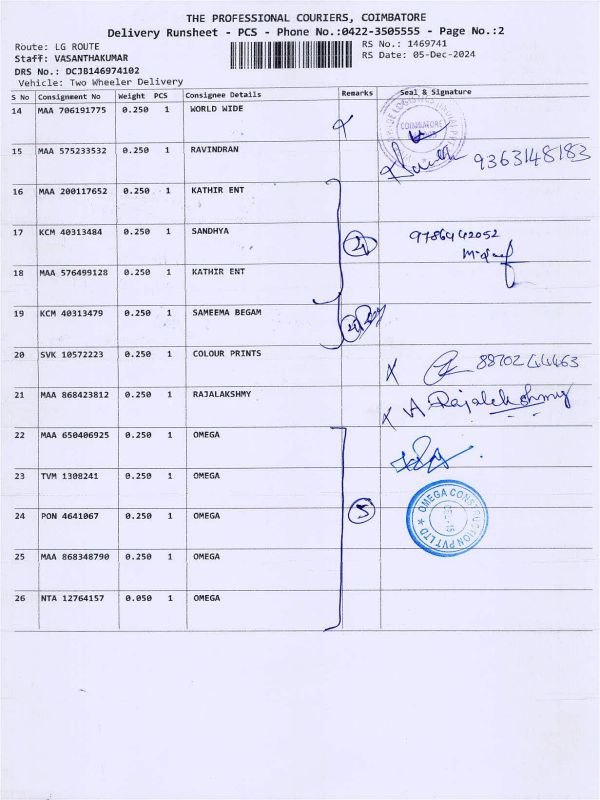 THE PROFESSIONAL COURIERS, COIMBATORE
Delivery Runsheet - PCS - Phone No.:0422-3505555 - Page No.:2
Route: LG ROUTE RS No.: 1469741
Staff: VASANTHAKUMAR RS Date: 05-Dec-2024
DRS No.: DCJB146974102
Vehicle: Two Wheeler Delivery
S No Consignment No Weight PCS Consignee Details Remarks Seal & Signature
14 MAA 706191775 0.250 1 WORLD WIDE
COIMBATORE
15 MAA 575233532 0.250 1 RAVINDRAN 9363148183
16 MAA 200117652 0.250 1 KATHIR ENT
17 KCM 40313484 0.250 1 SANDHYA 9786442052
18 MAA 576499128 0.250 1 KATHIR ENT
19 KCM 40313479 0.250 1 SAMEEMA BEGAM
20 SVK 10572223 0.250 1 COLOUR PRINTS X 88702 44463
21 MAA 868423812 0.250 1 RAJALAKSHMY X A. Rajalekshmy
22 MAA 650406925 0.250 1 OMEGA
23 TVM 1308241 0.250 1 OMEGA
24 PON 4641067 0.250 1 OMEGA 5 OMEGA CONSTRUCTION PVT LTD
25 MAA 868348790 0.250 1 OMEGA
26 NTA 12764157 0.050 1 OMEGA